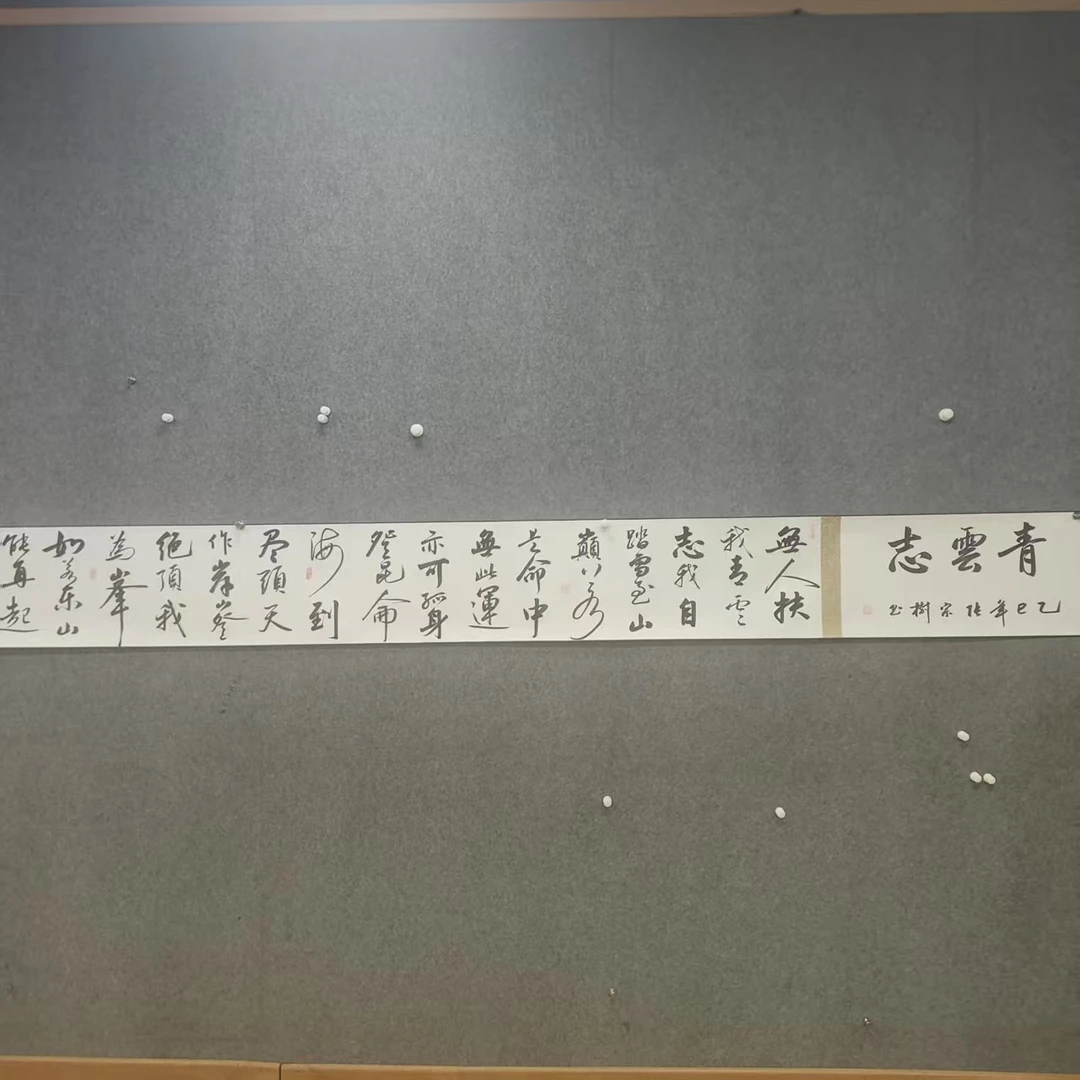 青雲志
乙巳年張宗樹书
無人扶
我青雲
志我自
踏雪至山
巔若
是命中
無此運
亦可孤身
登昆侖
海到
尽頭天
作岸登
絕頂我
為峯
如若东山
能再起